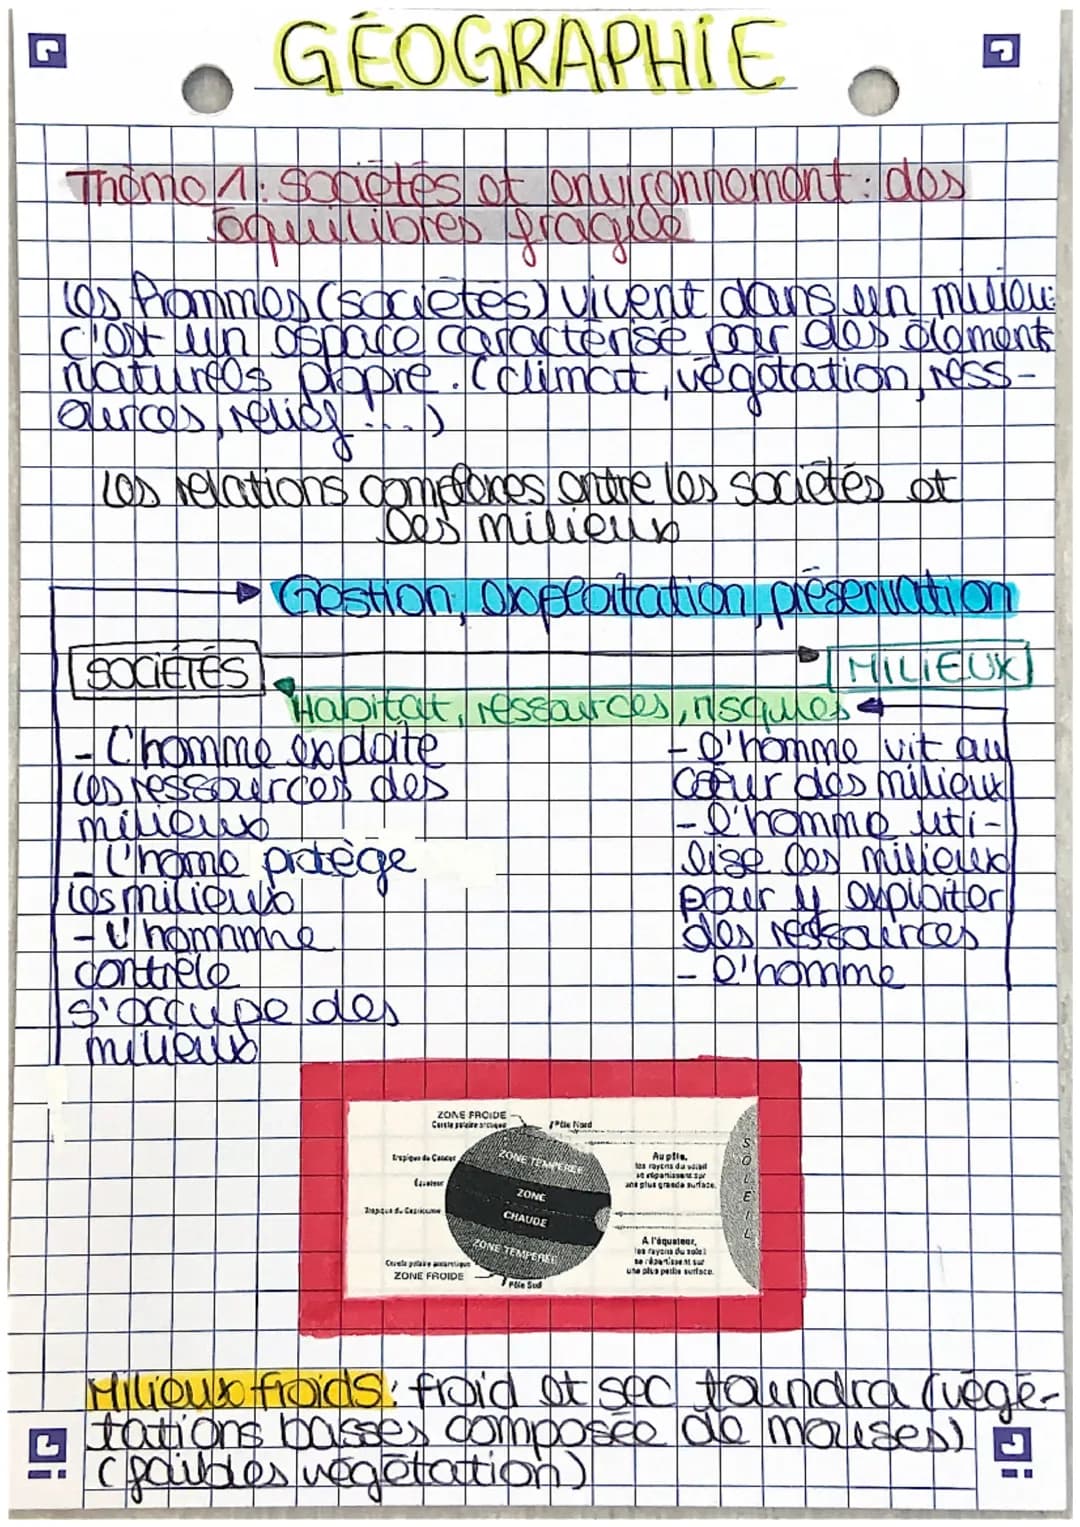 GÉOGRAPHIE
Thème 1: sociétés et environnement: des
équilibres fragile
Les hommes (sociétés) vivent dans un milieu:
c'est un espace caractérisé par des élements
naturels propre. (climat, végétation, ress-
ources, relief...)
Les relations complexes entre les sociétés et
les milieux
Gestion, exploitation, préservation
SOCIÉTÉS
MILIEUX
Habitat, ressources, risques
- L'homme exploite
les ressources des
milieux
- L'home protège
les milieux
- L'hommme
contrôle
s'occupe des
milieux
- l'homme vit au
cœur des milieux
- l'homme uti-
lise les milieux
pour y exploiter
des ressources
- l'homme
ZONE FROIDE
Cercle polaire arctique
Pôle Nord
Tropique du Cancer
Équateur
Tropique du Capricorne
Cercle polaire antarctique
ZONE FROIDE
Pôle Sud
ZONE TEMPÉRÉE
ZONE
CHAUDE
ZONE TEMPÉRÉE
Au pôle,
les rayons du soleil
se répartissent sur
une plus grande surface.
A l'équateur,
les rayons du soleil
se répartissent sur
une plus petite surface.
SOLEIL
Milieux froids: froid et sec toundra (végé-
tations basses composée de mouses)
(faibles végétation)